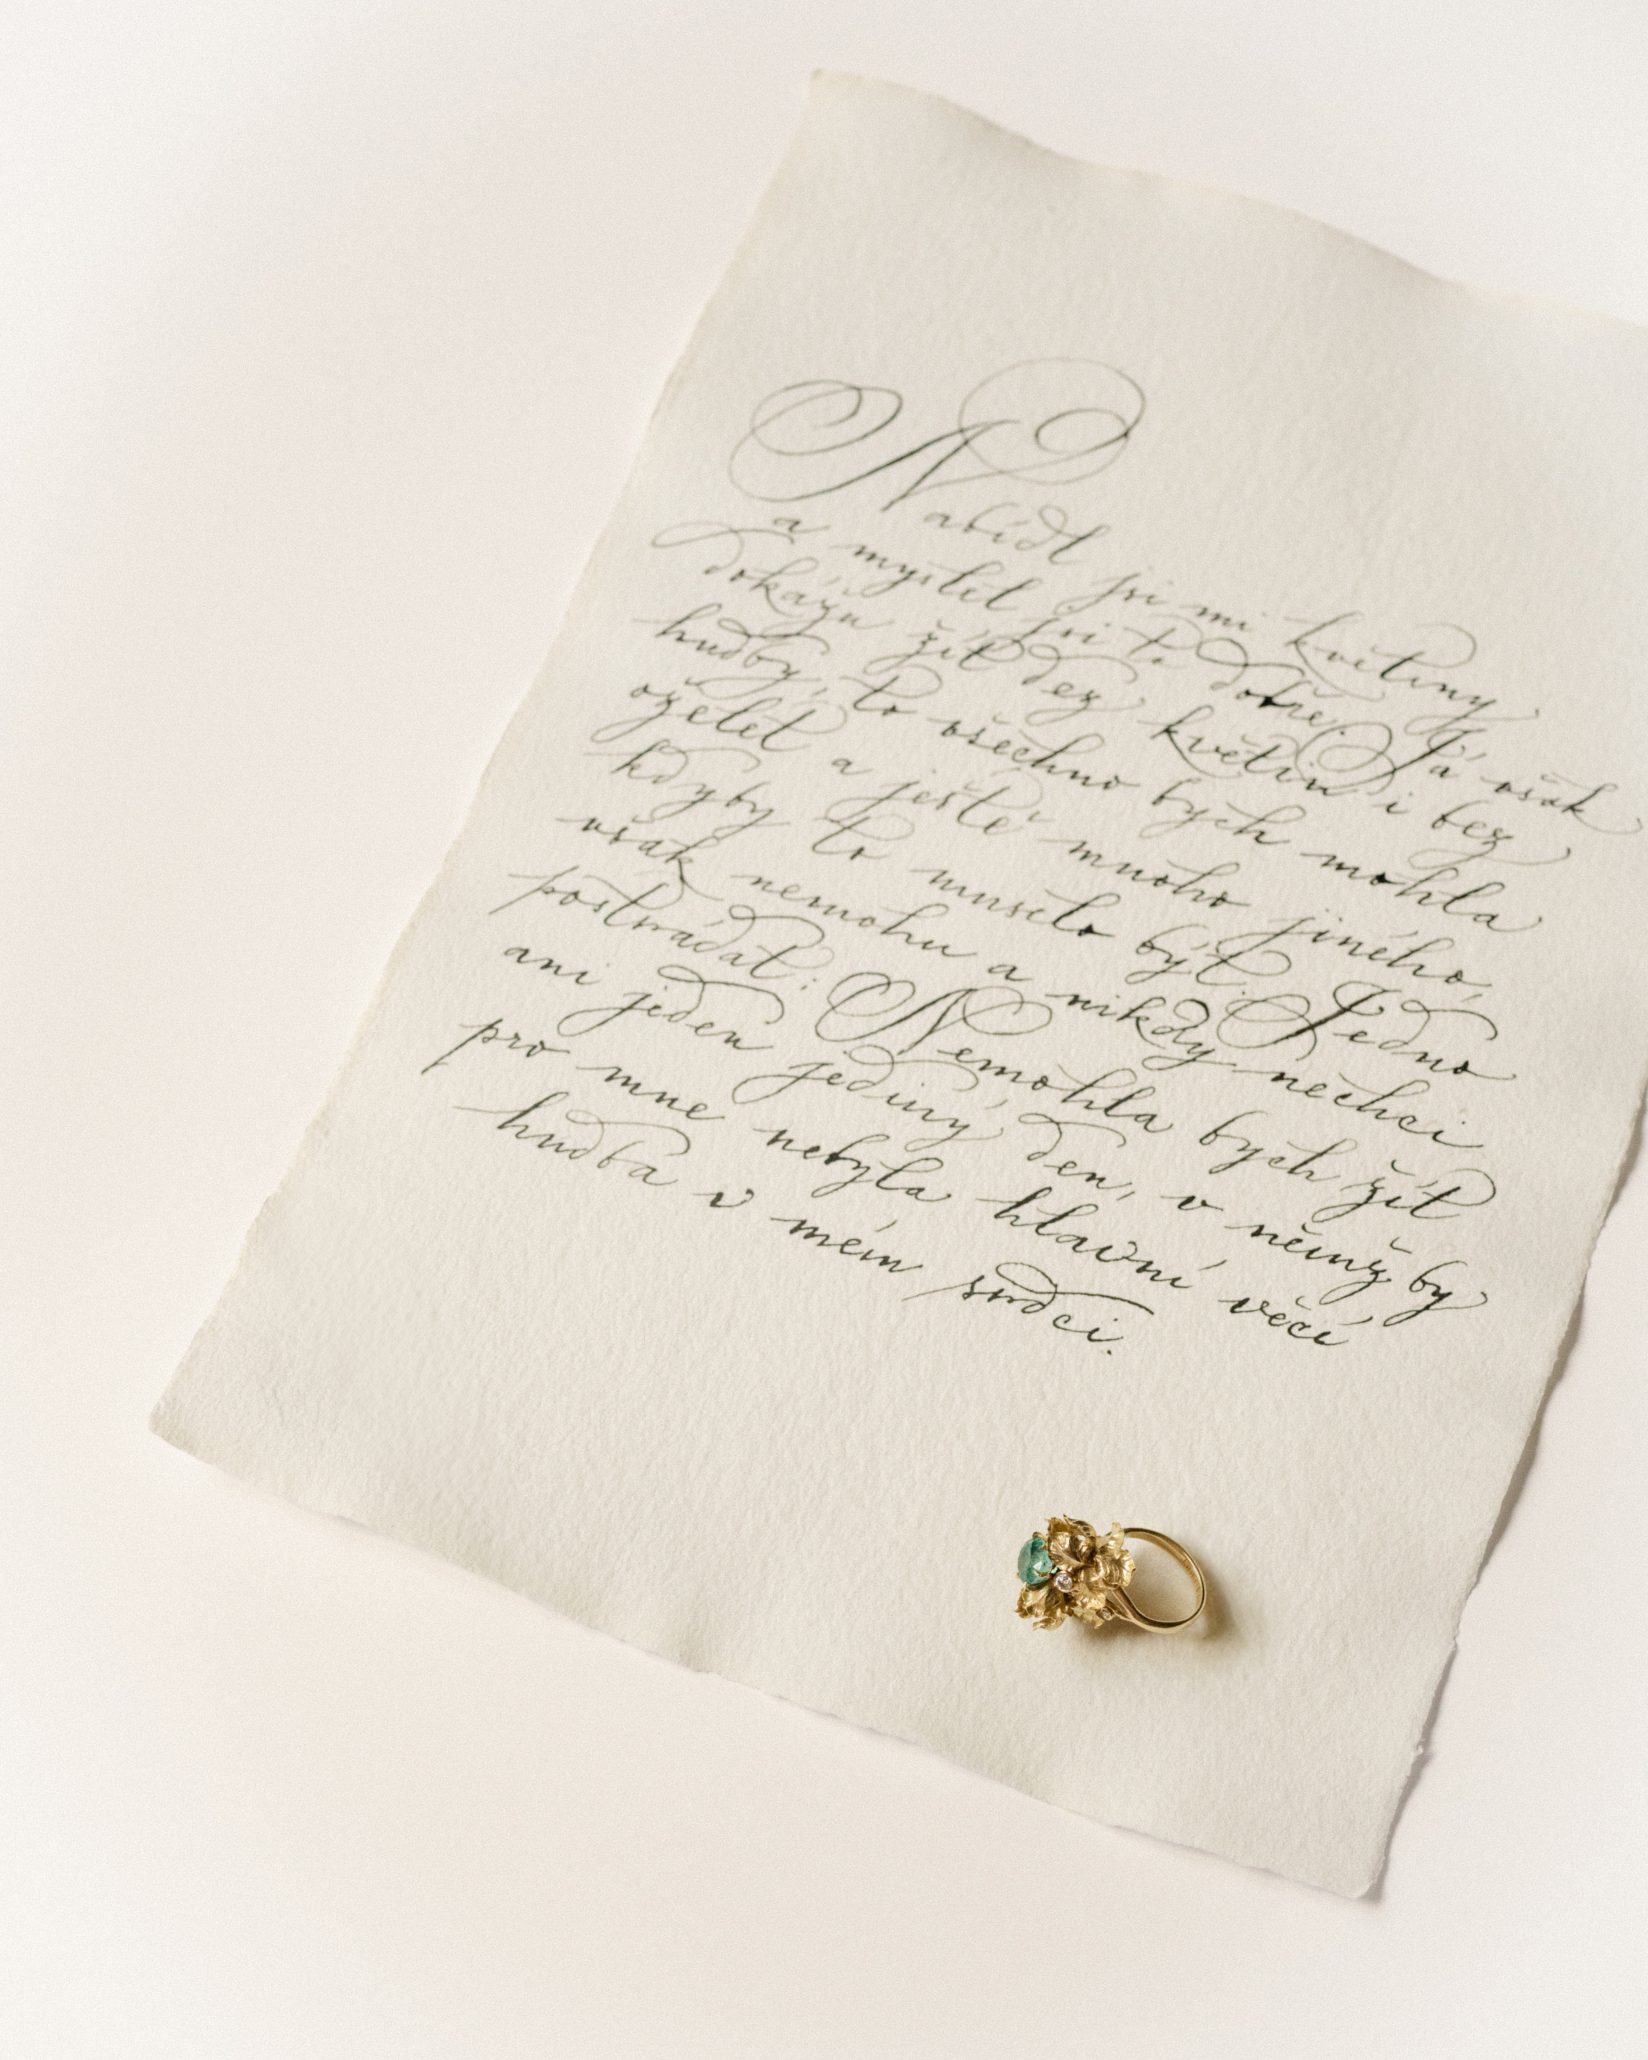 Nabídl jsi mi květiny
a myslel jsi to dobře. Já však
dokážu žít bez květin i bez
hudby, to všechno bych mohla
oželet a ještě mnoho jiného,
kdyby to muselo být. Jedno
však nemohu a nikdy nechci
postrádat: Nemohla bych žít
ani jeden jediný den, v němž by
pro mne nebyla hlavní věcí
hudba v mém srdci.